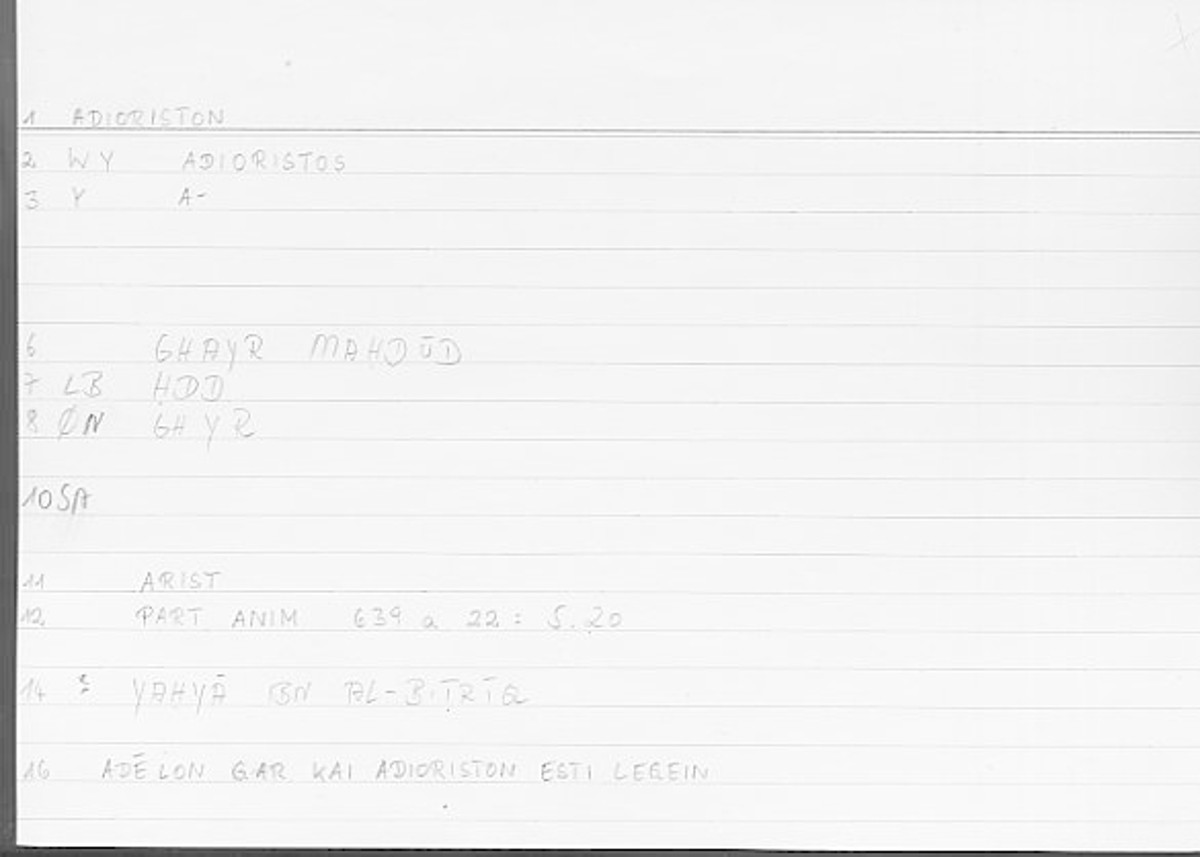 1 ADIORISTON
2 WY ADIORISTOS
3 Y A-
6 GHAYR MAHDŪD
7 LB ḤDD
8 ØN GHYR
10 SA
11 ARIST
12 PART ANIM 639 a 22 : 5.20
14 YAHYĀ IBN AL-BIṬRĪQ
16 ADĒLON GAR KAI ADIORISTON ESTI LEGEIN